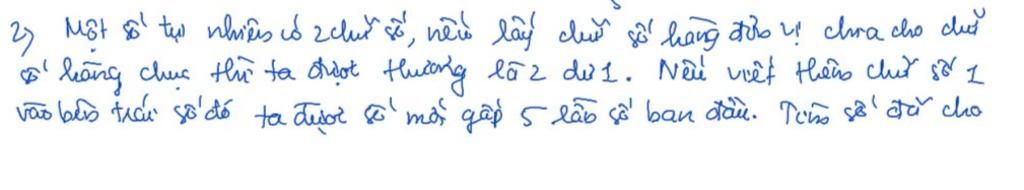 2) Một số tự nhiên có 2 chữ số, nếu lấy chữ số hàng đơn vị chia cho chữ
số hàng chục thì ta được thương là 2 dư 1. Nếu viết thêm chữ số 1
vào bên trái số đó ta được số mới gấp 5 lần số ban đầu. Tìm số đã cho